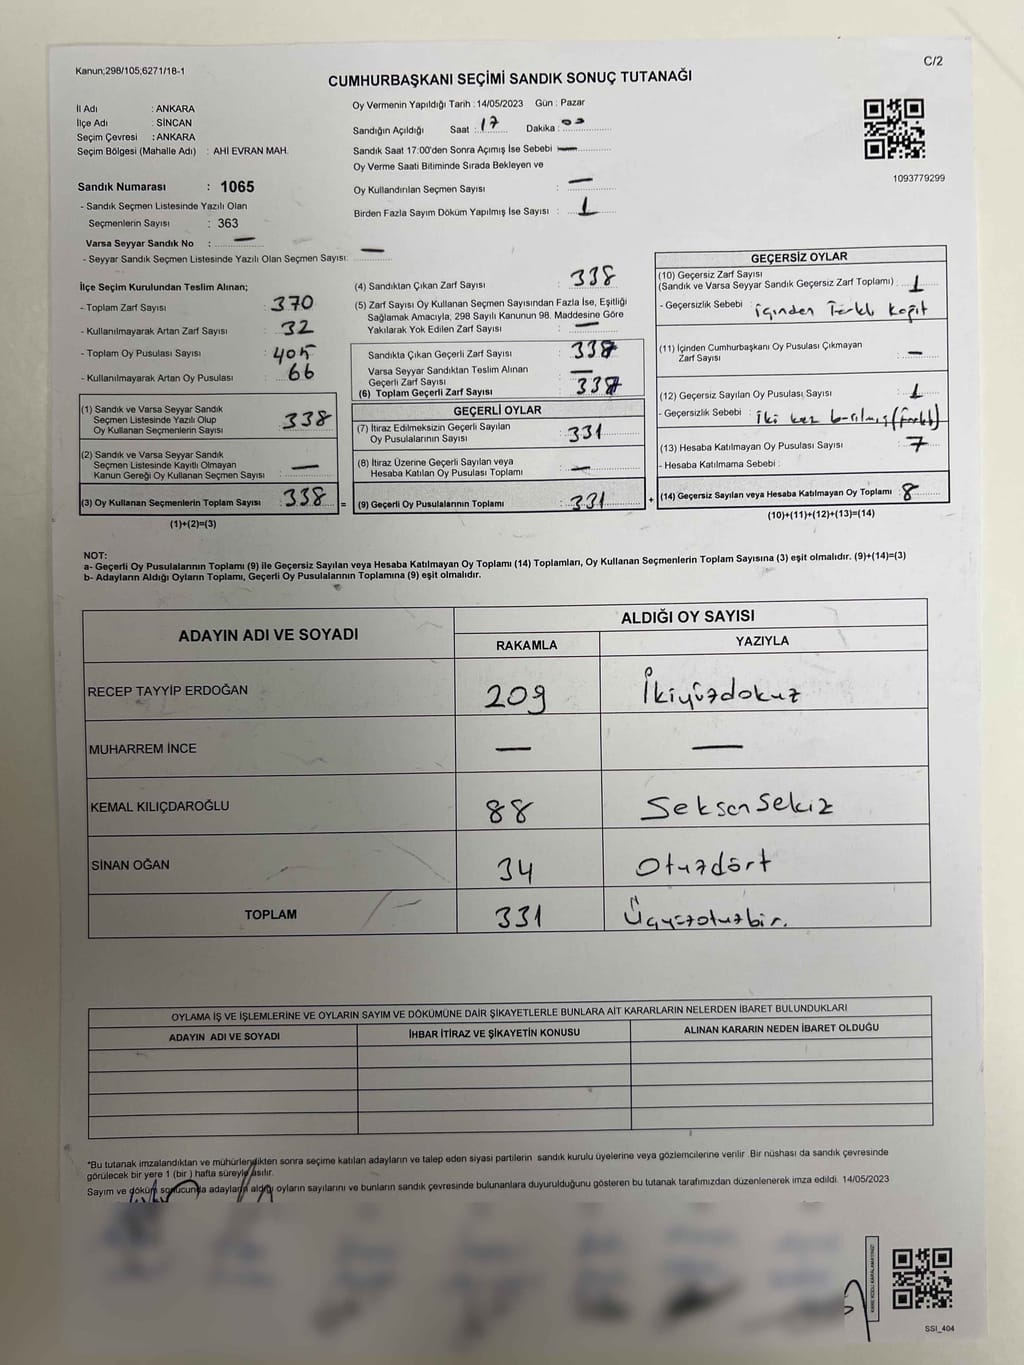 Kanun;298/105;6271/18-1
C/2
CUMHURBAŞKANI SEÇİMİ SANDIK SONUÇ TUTANAĞI
İl Adı : ANKARA
İlçe Adı : SİNCAN
Seçim Çevresi : ANKARA
Seçim Bölgesi (Mahalle Adı) : AHİ EVRAN MAH.
Sandık Numarası : 1065
- Sandık Seçmen Listesinde Yazılı Olan
Seçmenlerin Sayısı : 363
Varsa Seyyar Sandık No : —
- Seyyar Sandık Seçmen Listesinde Yazılı Olan Seçmen Sayısı: —
Oy Vermenin Yapıldığı Tarih : 14/05/2023 Gün : Pazar
Sandığın Açıldığı Saat : 17 Dakika : 00
Sandık Saat 17:00'den Sonra Açımış İse Sebebi —
Oy Verme Saati Bitiminde Sırada Bekleyen ve
Oy Kullandırılan Seçmen Sayısı : —
Birden Fazla Sayım Döküm Yapılmış İse Sayısı : 1
1093779299
İlçe Seçim Kurulundan Teslim Alınan;
- Toplam Zarf Sayısı : 370
- Kullanılmayarak Artan Zarf Sayısı : 32
- Toplam Oy Pusulası Sayısı : 405
- Kullanılmayarak Artan Oy Pusulası : 66
(1) Sandık ve Varsa Seyyar Sandık
Seçmen Listesinde Yazılı Olup
Oy Kullanan Seçmenlerin Sayısı : 338
(2) Sandık ve Varsa Seyyar Sandık
Seçmen Listesinde Kayıtlı Olmayan
Kanun Gereği Oy Kullanan Seçmen Sayısı : —
(3) Oy Kullanan Seçmenlerin Toplam Sayısı : 338 =
(1)+(2)=(3)
(4) Sandıktan Çıkan Zarf Sayısı : 338
(5) Zarf Sayısı Oy Kullanan Seçmen Sayısından Fazla İse, Eşitliği
Sağlamak Amacıyla, 298 Sayılı Kanunun 98. Maddesine Göre
Yakılarak Yok Edilen Zarf Sayısı : —
Sandıkta Çıkan Geçerli Zarf Sayısı : 338
Varsa Seyyar Sandıktan Teslim Alınan
Geçerli Zarf Sayısı : —
(6) Toplam Geçerli Zarf Sayısı : 337
GEÇERLİ OYLAR
(7) İtiraz Edilmeksizin Geçerli Sayılan
Oy Pusulalarının Sayısı : 331
(8) İtiraz Üzerine Geçerli Sayılan veya
Hesaba Katılan Oy Pusulası Toplamı : —
(9) Geçerli Oy Pusulalarının Toplamı : 331 +
GEÇERSİZ OYLAR
(10) Geçersiz Zarf Sayısı
(Sandık ve Varsa Seyyar Sandık Geçersiz Zarf Toplamı) : 1
- Geçersizlik Sebebi : içinden farklı kağıt
(11) İçinden Cumhurbaşkanı Oy Pusulası Çıkmayan
Zarf Sayısı : —
(12) Geçersiz Sayılan Oy Pusulası Sayısı : 1
- Geçersizlik Sebebi : iki kez basılmış
(13) Hesaba Katılmayan Oy Pusulası Sayısı : 7
- Hesaba Katılmama Sebebi :
(14) Geçersiz Sayılan veya Hesaba Katılmayan Oy Toplamı : 8
(10)+(11)+(12)+(13)=(14)
NOT:
a- Geçerli Oy Pusulalarının Toplamı (9) ile Geçersiz Sayılan veya Hesaba Katılmayan Oy Toplamı (14) Toplamları, Oy Kullanan Seçmenlerin Toplam Sayısına (3) eşit olmalıdır. (9)+(14)=(3)
b- Adayların Aldığı Oyların Toplamı, Geçerli Oy Pusulalarının Toplamına (9) eşit olmalıdır.
ADAYIN ADI VE SOYADI
ALDIĞI OY SAYISI
RAKAMLA YAZIYLA
RECEP TAYYİP ERDOĞAN 209 İkiyüzdokuz
MUHARREM İNCE — —
KEMAL KILIÇDAROĞLU 88 Seksensekiz
SİNAN OĞAN 34 Otuzdört
TOPLAM 331 Üçyüzotuzbir.
OYLAMA İŞ VE İŞLEMLERİNE VE OYLARIN SAYIM VE DÖKÜMÜNE DAİR ŞİKAYETLERLE BUNLARA AİT KARARLARIN NELERDEN İBARET BULUNDUKLARI
ADAYIN ADI VE SOYADI İHBAR İTİRAZ VE ŞİKAYETİN KONUSU ALINAN KARARIN NEDEN İBARET OLDUĞU
*Bu tutanak imzalandıktan ve mühürlendikten sonra seçime katılan adayların ve talep eden siyasi partilerin sandık kurulu üyelerine veya gözlemcilerine verilir .Bir nüshası da sandık çevresinde
görülecek bir yere 1 (bir ) hafta süreyle asılır.
Sayım ve döküm sonucunda adayların aldığı oyların sayılarını ve bunların sandık çevresinde bulunanlara duyurulduğunu gösteren bu tutanak tarafımızdan düzenlenerek imza edildi. 14/05/2023
KARE KODU KARALAMAYINIZ!
SSI_404